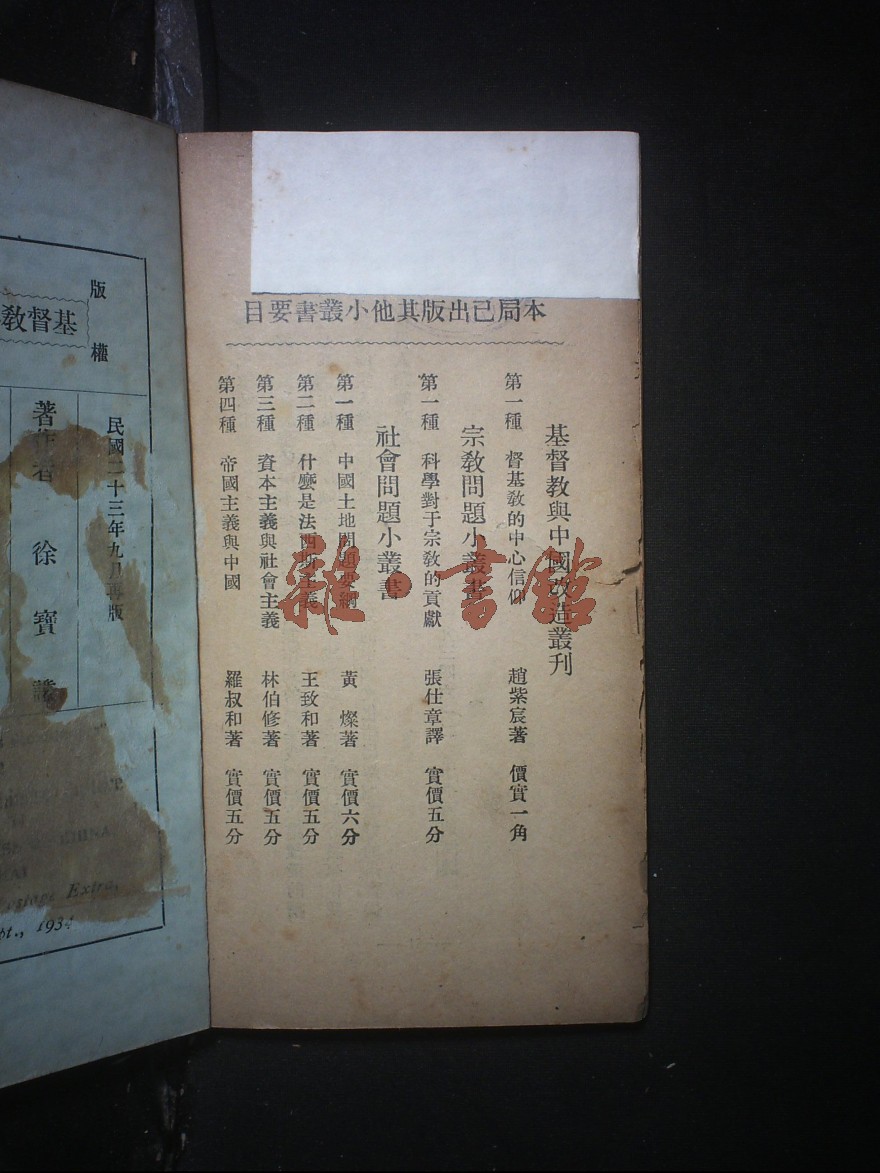 本局已出版其他小叢書要目
基督教與中國改造叢刊
第一種 督基敎的中心信仰 趙紫宸著 價實一角
宗敎問題小叢書
第一種 科學對于宗敎的貢獻 張仕章譯 實價五分
社會問題小叢書
第一種 中國土地問題要綱 黃燦著 實價六分
第二種 什麼是法西斯主義 王致和著 實價五分
第三種 資本主義與社會主義 林伯修著 實價五分
第四種 帝國主義與中國 羅叔和著 實價五分
版權
基督敎
民國二十三年九月再版
著作者 徐寶謙
Postage Extra.
pt., 1934
雜·書館